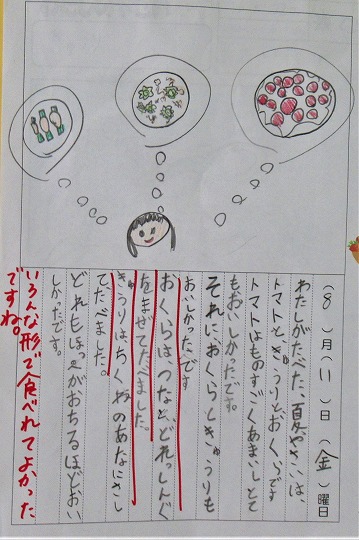 (8)月(11)日(金)曜日
わたしがたべた、夏やさいは、
トマトと、きゅうりと、おくらです
トマトはものすごくあまいしとて
もおいしかったです。
それにおくらときゅうりも
おいしかったです
おくらは、つなと、どれっしんぐ
をまぜてたべました。
きゅうりは、ちくわのあなにさし
てたべました。
どれもほっぺがおちるほどおい
しかったです。
いろんな形で食べれてよかった
ですね。